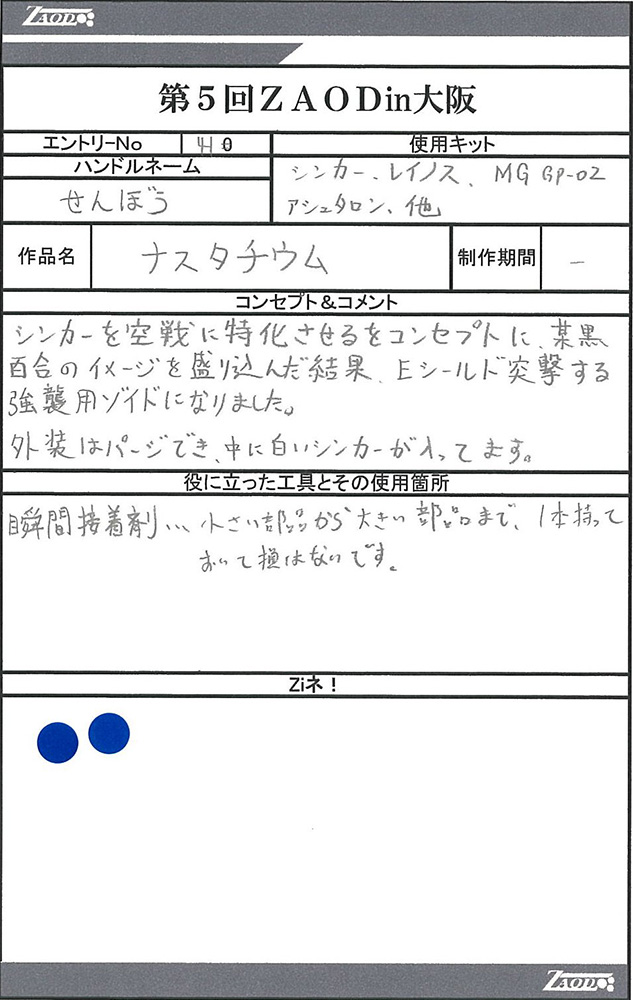 ZAOD
第5回ZAODin大阪
エントリーNo
410
使用キット
ハンドルネーム
シンカー、レイノス、MG GP-02
せんぼう
アシュタロン、他
作品名
ナスタチウム
制作期間
−
コンセプト&コメント
シンカーを空戦に特化させるをコンセプトに、某黒
百合のイメージを盛り込んだ結果、Eシールド突撃する
強襲用ゾイドになりました。
外装はパージでき、中に白いシンカーが入ってます。
役に立った工具とその使用箇所
瞬間接着剤… 小さい部品から大きい部品まで、1本持って
おいて損はないです。
Ziネ!
ZAOD